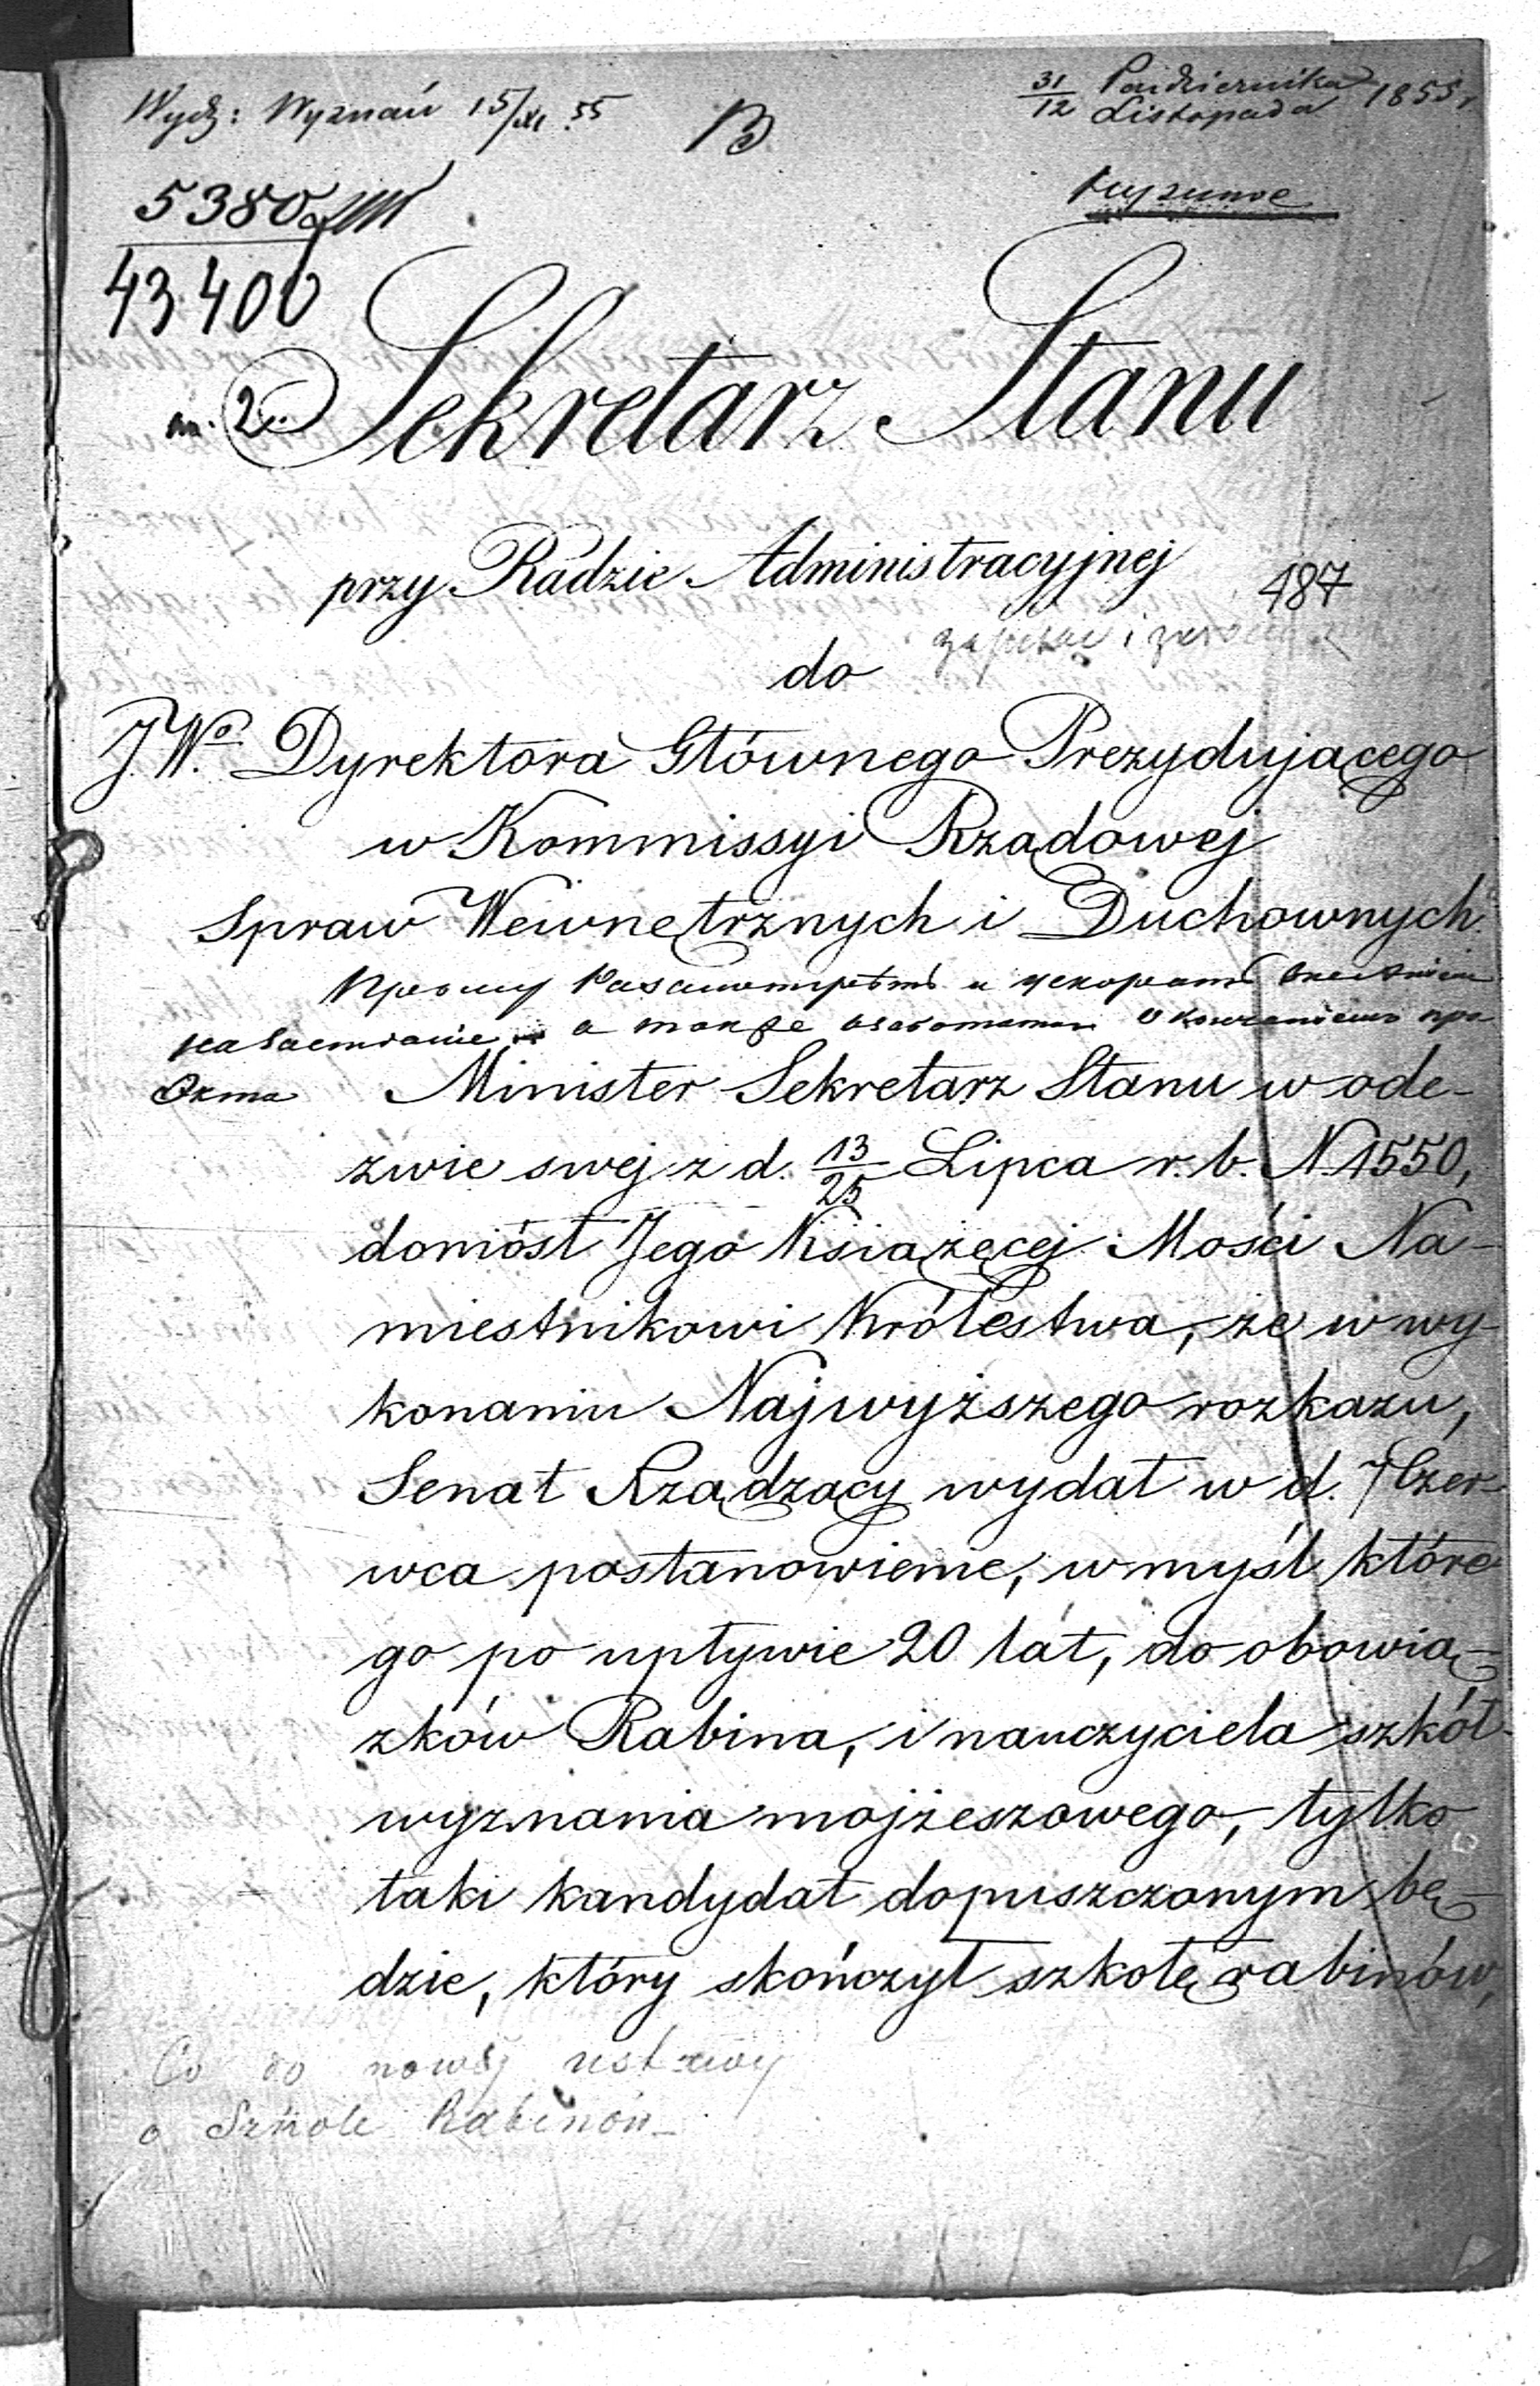 Wydz: Wyznań 15/XI 55
B
31/12 Października Listopada 1855 r
5380
43.400
2
Sekretarz Stanu
przy Radzie Administracyjnej
487
zapisać i
do
J.Wo. Dyrektora Głównego Prezydującego
w Kommissyi Rządowej
Spraw Wewnętrznych i Duchownych.
Прошу разсмотрѣть и ускорить
а также
Minister Sekretarz Stanu w ode-
zwie swej z d. 13/25 Lipca r. b. N. 1550,
doniósł Jego Książęcej Mości Na-
miestnikowi Królestwa, że w wy-
konaniu Najwyższego rozkazu,
Senat Rządzący wydał w d. 7 Czer-
wca postanowienie, w myśl które
go po upływie 20 lat, do obowią-
zków Rabina, i nauczyciela szkół
wyznania mojżeszowego, tylko
taki kandydat dopuszczonym bę-
dzie, który skończył szkołę rabinów,
Co do nowej ustawy
o Szkole Rabinów